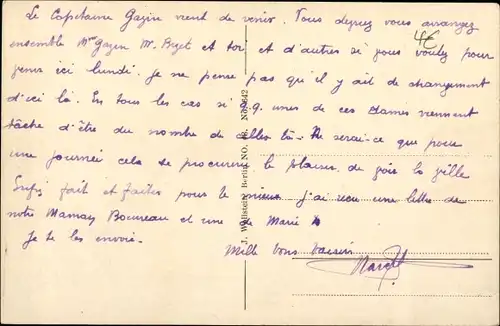 Le Capitaine Gazin vient de venir. Vous devez vous arranger
4€
ensemble Mme Gazin M. et toi et d'autres si vous voulez pour
venir ici lundi. Je ne pense pas qu'il y ait de changement
d'ici là. En tous les cas si q.q. unes de ces dames viennent
tâche d'être du nombre de celles là. Ne serait-ce que pour
une journée cela te procurera le plaisir de
fait et faites pour le mieux j'ai reçu une lettre de
notre Maman et une de Marie
Je te les envoie.
Mille bons baisers
J. Wollstein, Berlin NO. 18. No.